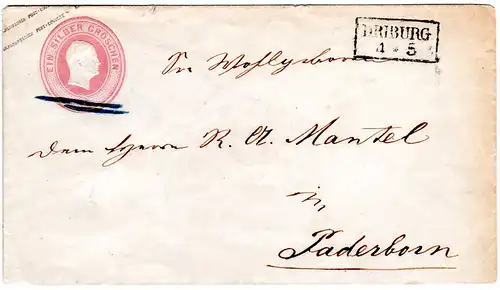 EIN SILBER GROSCHEN
DRIBURG
1 * 5
Sr Wohlgeboren
dem Herrn R. A. Mantel
in
Paderborn